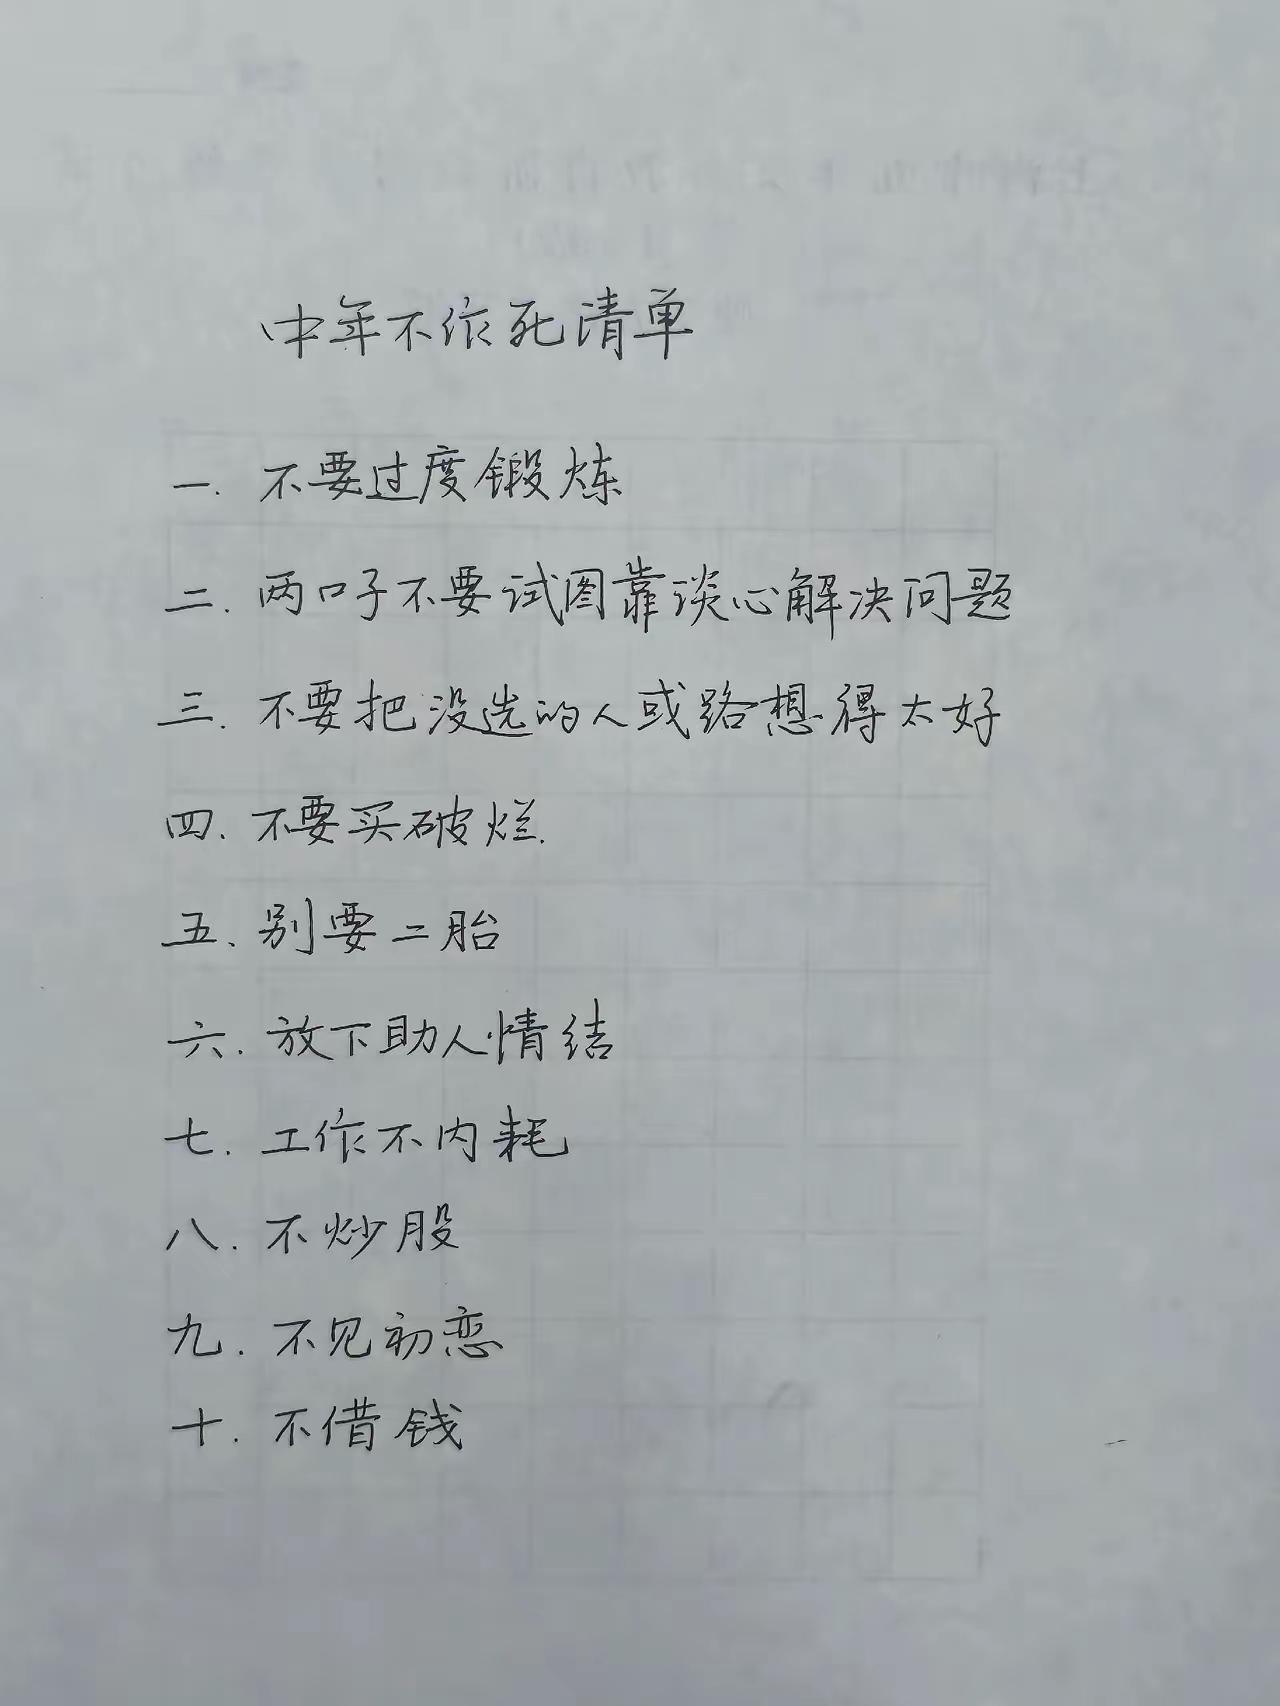 中年不作死清单
一. 不要过度锻炼
二. 两口子不要试图靠谈心解决问题
三. 不要把没选的人或路想得太好
四. 不要买破烂.
五. 别要二胎
六. 放下助人情结
七. 工作不内耗
八. 不炒股
九. 不见初恋
十. 不借钱